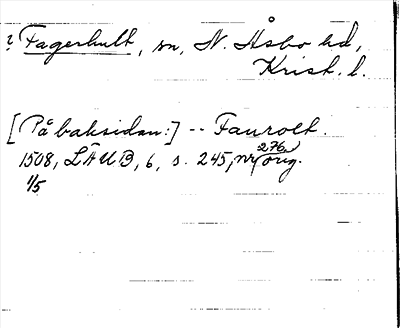 ? Fagerhult, sn, N. Åsbo hd,
Krist. l.
[På baksidan:] -- Faurolt.
1508, LÄUB, 6, s. 245, nr 276, orig.
1/5